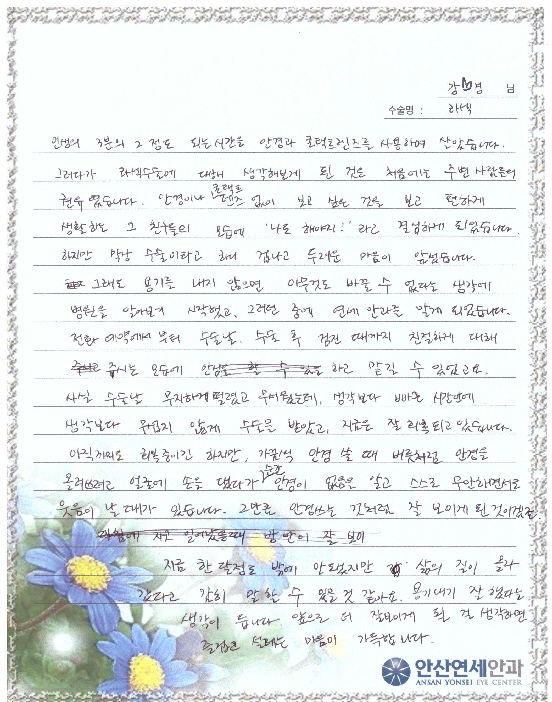 강 경 님
수술명 : 라섹
인생의 3분의 2 정도 되는 시간을 안경과 콘택트렌즈를 사용하며 살았습니다.
그러다가 라섹수술에 대해 생각해보게 된 것은 처음에는 주변 사람들의
권유였습니다. 안경이나 콘택트렌즈 없이 보고 싶은 것을 보고 편하게
생활하는 그 친구들의 모습에 '나도 해야지!' 라고 결심하게 되었습니다.
하지만 막상 수술이라고 하니 겁나고 두려운 마음이 앞섰습니다.
그래도 용기를 내지 않으면 아무것도 바뀔 수 없다는 생각에
병원을 알아보기 시작했고, 그러던 중에 연세안과를 알게 되었습니다.
전화 예약에서부터 수술날, 수술 후 검진 때까지 친절하게 대해
주시는 모습에 안심하고 맡길 수 있었고요.
사실 수술날 무지하게 떨렸고 무서웠는데, 생각보다 빠른 시간안에
생각보다 무섭지 않게 수술을 받았고, 지금은 잘 회복되고 있습니다.
아직까지도 회복중이긴 하지만, 가끔씩 안경 쓸 때 버릇처럼 안경을
올려쓰려고 얼굴에 손을 댔다가 안경이 없음을 알고 스스로 무안하면서도
웃음이 날 때가 있습니다. 그만큼 안경쓰는 것처럼 잘 보이게 된 것이겠죠.
지금 한 달정도 밖에 안됐지만 삶의 질이 올라
갔다고 감히 말할 수 있을 것 같아요. 용기내기 잘 했다는
생각이 듭니다. 앞으로 더 잘보이게 될 걸 생각하면
즐겁고 설레는 마음이 가득합니다.
안산연세안과
ANSAN YONSEI EYE CENTER